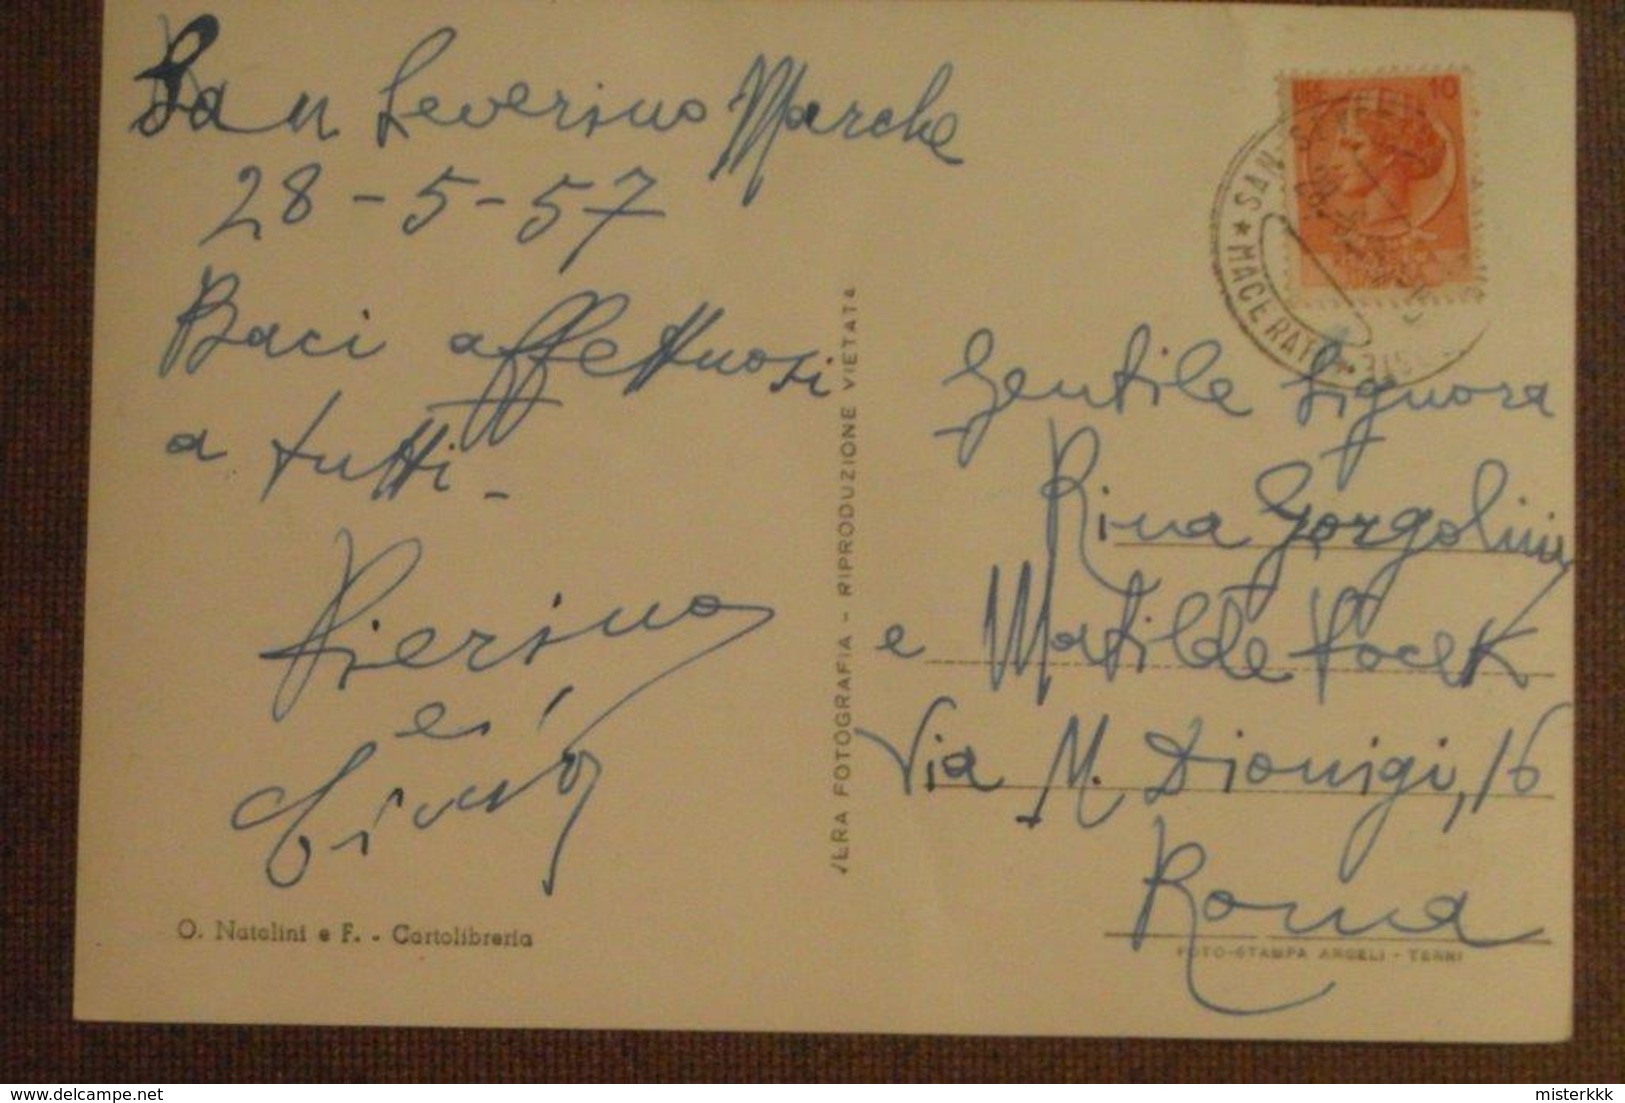 San Severino Marche
28-5-57
Baci affettuosi
a tutti -
Piersino
e
O. Natalini e F. - Cartolibreria
VERA FOTOGRAFIA - RIPRODUZIONE VIETATA
LIRE 10
SAN
* MACERATA *
Gentile Signora
Rina Gorgolini
e Matilde Vocek
Via M. Dionigi, 16
Roma
FOTO-STAMPA ANGELI - TERNI
delcampe.net
misterkkk